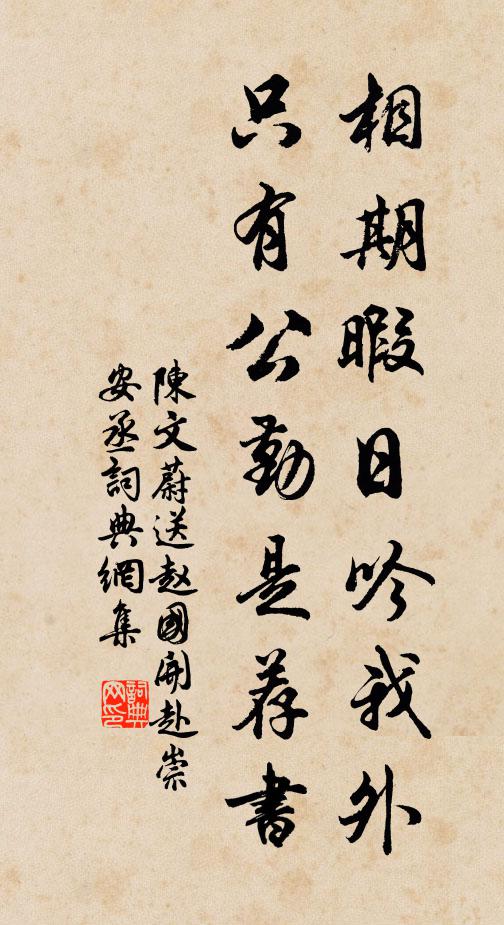 相期暇日吟我外
只有公勤是荐书
陳文蔚送赵國開赴崇
安丞詞典網集
詞典网印